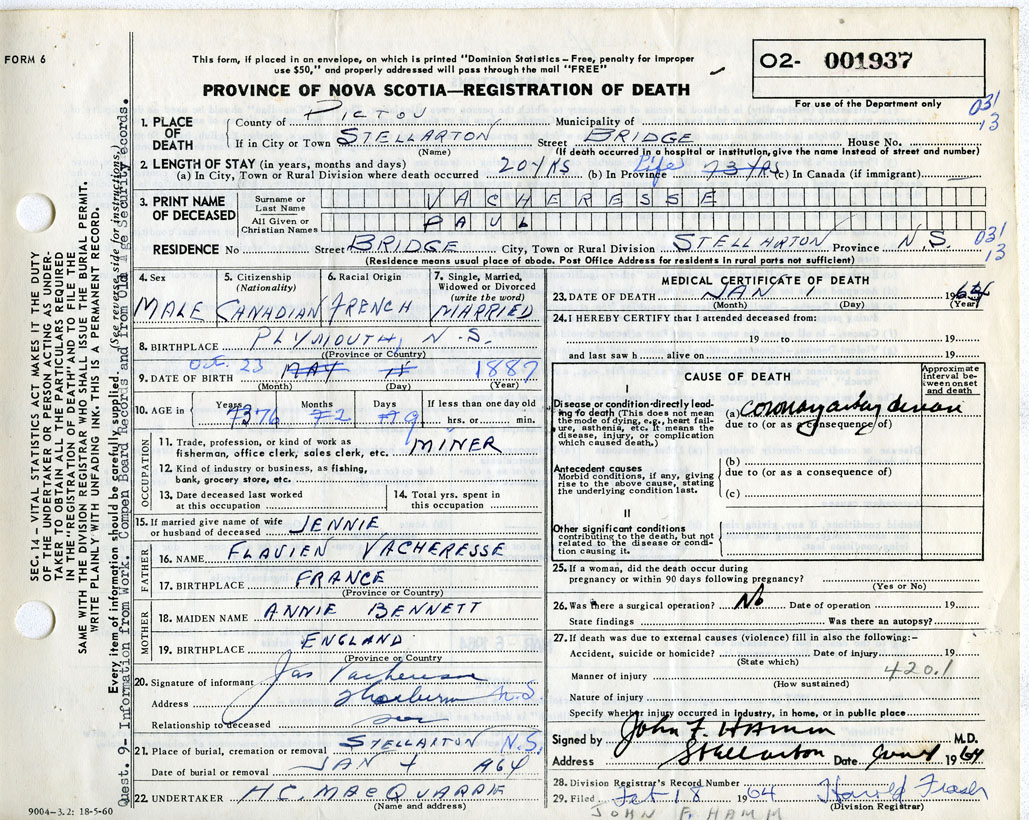 FORM 6
This form, if placed in an envelope, on which is printed "Dominion Statistics – Free, penalty for improper
use $50," and properly addressed will pass through the mail "FREE"
PROVINCE OF NOVA SCOTIA—REGISTRATION OF DEATH
O2- 001937
For use of the Department only
031
13
1. PLACE OF DEATH
County of PICTOU Municipality of
If in City or Town STELLARTON Street BRIDGE House No.
(Name) (If death occurred in a hospital or institution, give the name instead of street and number)
2. LENGTH OF STAY (in years, months and days)
(a) In City, Town or Rural Division where death occurred 20 YRS (b) In Province Life 73 YRS (c) In Canada (if immigrant)
3. PRINT NAME OF DECEASED
Surname or Last Name VACHERESSE
All Given or Christian Names PAUL
RESIDENCE No Street BRIDGE City, Town or Rural Division STELLARTON Province N.S. 031
13
(Residence means usual place of abode. Post Office Address for residents in rural parts not sufficient)
4. Sex
MALE
5. Citizenship
(Nationality)
CANADIAN
6. Racial Origin
FRENCH
7. Single, Married,
Widowed or Divorced
(write the word)
MARRIED
8. BIRTHPLACE PLYMOUTH, N.S.
(Province or Country)
OCT. 23
9. DATE OF BIRTH MAY 1887
(Month) (Day) (Year)
10. AGE in Years 76 Months 2 Days 9 If less than one day old
hrs. or min.
OCCUPATION
11. Trade, profession, or kind of work as
fisherman, office clerk, sales clerk, etc. MINER
12. Kind of industry or business, as fishing,
bank, grocery store, etc.
13. Date deceased last worked
at this occupation
14. Total yrs. spent in
this occupation
15. If married give name of wife
or husband of deceased JENNIE
FATHER
16. NAME FLAVIEN VACHERESSE
17. BIRTHPLACE FRANCE
(Province or Country)
MOTHER
18. MAIDEN NAME ANNIE BENNETT
19. BIRTHPLACE ENGLAND
(Province or Country
20. Signature of informant Jas Vacheresse
Address Thorburn N.S.
Relationship to deceased son
21. Place of burial, cremation or removal STELLARTON N.S.
Date of burial or removal JAN 1964
22. UNDERTAKER H.C. MACQUARRIE
(Name and address)
9004-3.2: 18-5-60
MEDICAL CERTIFICATE OF DEATH
23. DATE OF DEATH JAN 1 1964
(Month) (Day) (Year)
24. I HEREBY CERTIFY that I attended deceased from:
19 to 19
and last saw h alive on 19
CAUSE OF DEATH
Approximate
interval between onset
and death
I
Disease or condition directly leading to death (This does not mean
the mode of dying, e.g., heart failure, asthenia, etc. It means the
disease, injury, or complication
which caused death.)
(a) coronary artery disease
due to (or as a consequence of)
Antecedent causes
Morbid conditions, if any, giving
rise to the above cause, stating
the underlying condition last.
(b)
due to (or as a consequence of)
(c)
II
Other significant conditions
contributing to the death, but not
related to the disease or condition causing it.
25. If a woman, did the death occur during
pregnancy or within 90 days following pregnancy?
(Yes or No)
26. Was there a surgical operation? No Date of operation 19
State findings Was there an autopsy?
27. If death was due to external causes (violence) fill in also the following:–
Accident, suicide or homicide? Date of injury 19
(State which)
420.1
Manner of injury
(How sustained)
Nature of injury
Specify whether injury occurred in industry, in home, or in public place
Signed by John F. Hamm M.D.
Address Stellarton Date 1964
28. Division Registrar's Record Number
29. Filed Feb 18 1964 Harold Fraser
(Division Registrar)
JOHN F. HAMM
SEC. 14 – VITAL STATISTICS ACT MAKES IT THE DUTY
OF THE UNDERTAKER OR PERSON ACTING AS UNDERTAKER TO OBTAIN ALL THE PARTICULARS REQUIRED
IN THE "REGISTRATION OF DEATH" AND TO FILE THE
SAME WITH THE DIVISION REGISTRAR WHO SHALL ISSUE THE BURIAL PERMIT.
WRITE PLAINLY WITH UNFADING INK. THIS IS A PERMANENT RECORD.
Every item of information should be carefully supplied. (See reverse side for instructions.)
Quest. 9. Information from Work. Compen Board Records and from Old Age Security records.